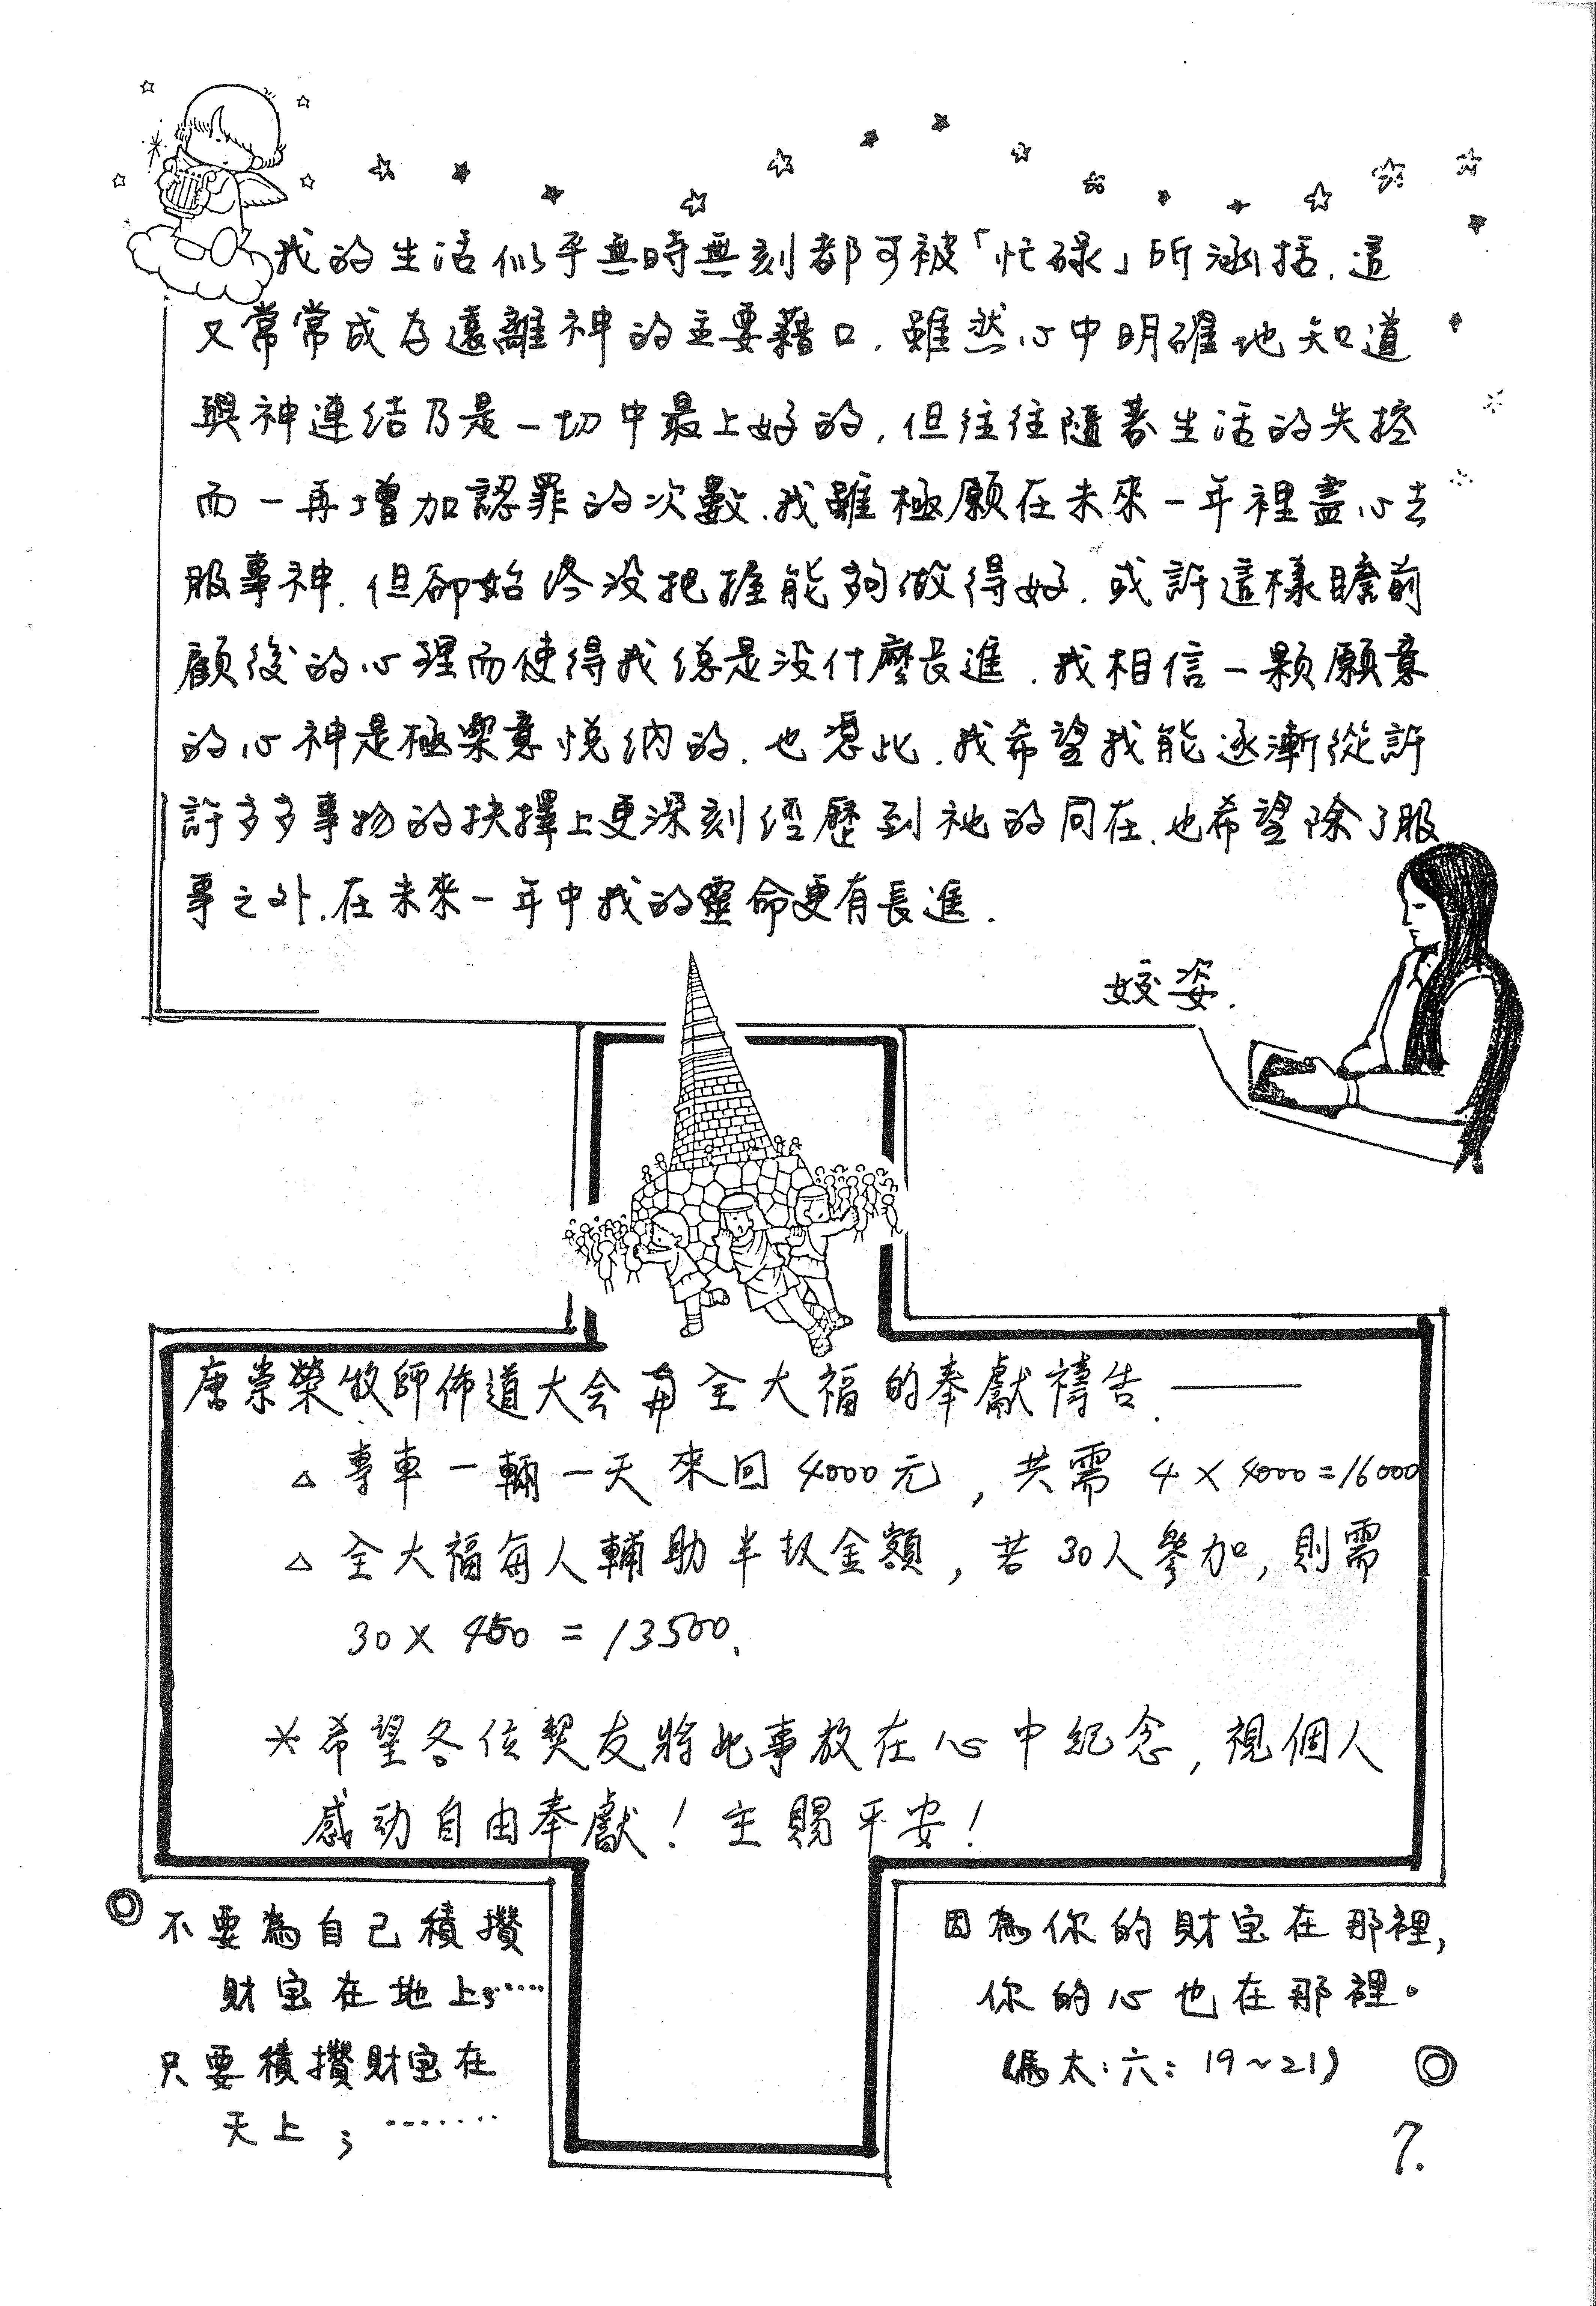 我的生活似乎無時無刻都可被「忙碌」所涵括.這
又常常成為遠離神的主要藉口.雖然心中明確地知道
與神連結乃是一切中最上好的,但往往隨著生活的失控
而一再增加認罪的次數.我雖極願在未來一年裡盡心去
服事神.但卻始終没把握能夠做得好.或許這樣瞻前
顧後的心理而使得我總是没什麼長進.我相信一顆願意
的心神是極樂意悅納的.也憑此.我希望我能逐漸從許
許多多事物的抉擇上更深刻經歷到祂的同在.也希望除了服
事之外.在未來一年中我的靈命更有長進.
姣姿.
唐崇榮牧師佈道大会 為 全大福的奉獻禱告.——
△ 專車一輛一天來回4000元,共需 4×4000=16000
△ 全大福每人輔助半票金額,若30人參加,則需
30×450=13500.
*希望各位契友將此事放在心中紀念,視個人
感动自由奉獻!主賜平安!
◎不要為自己積攢
財宝在地上;……
只要積攢財宝在
天上;………
因為你的財宝在那裡,
你的心也在那裡。
(馬太:六:19~21) ◎
7.